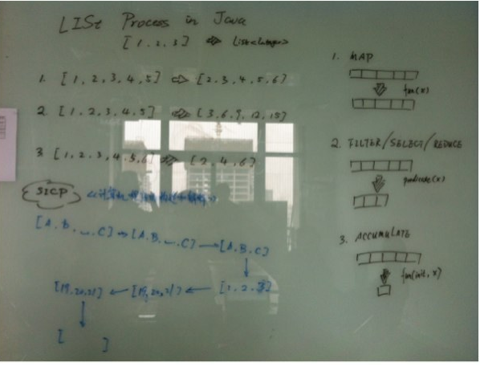 LISt Process in Java
[1, 2, 3] ⇔ List<Integer>
1. [1, 2, 3, 4, 5] ⇨ [2, 3, 4, 5, 6]
2. [1, 2, 3, 4, 5] ⇨ [3, 6, 9, 12, 15]
3. [1, 2, 3, 4, 5, 6] ⇨ [2, 4, 6]
SICP
[A, B, ..., C] → [A, B, ..., C] → [A, B, C]
[19, 20, 21] ← [19, 20, 21] ← [1, 2, 3]
[ ]
1. MAP
fn(x)
2. FILTER/SELECT/REDUCE
predicate(x)
3. ACCUMULATE
fn(init, x)